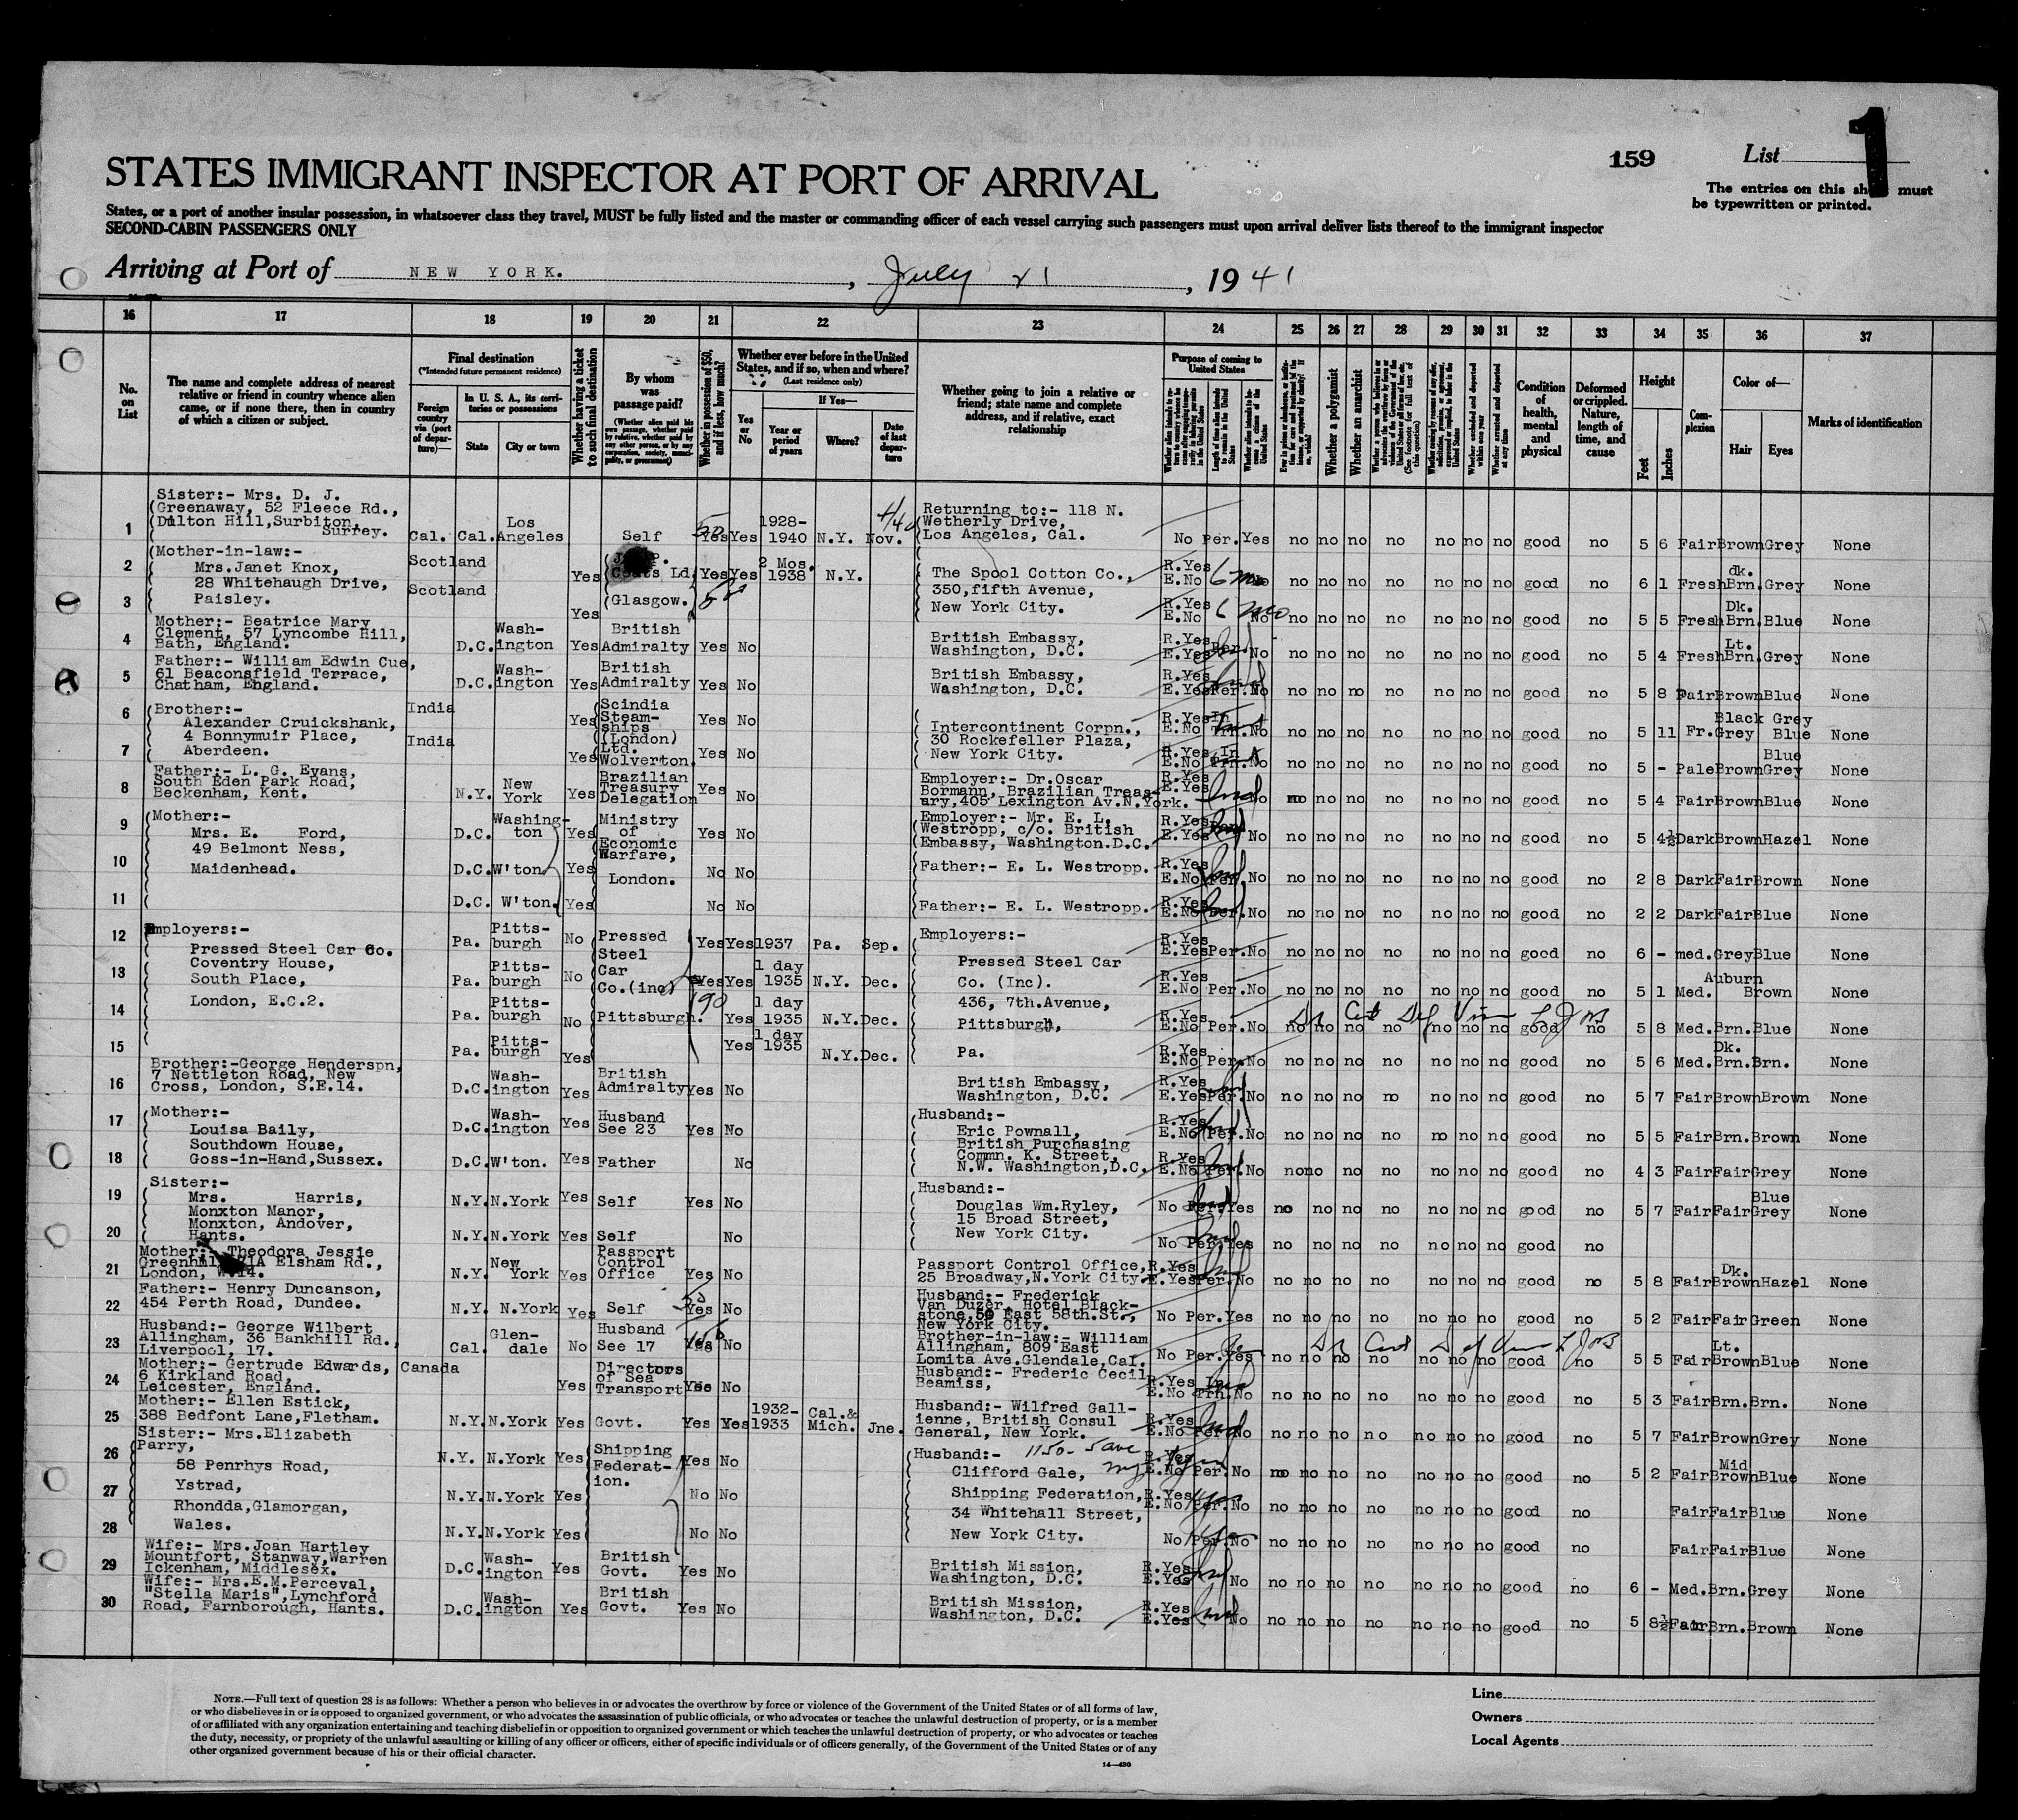 1
159
List
The entries on this sheet must
be typewritten or printed.
STATES IMMIGRANT INSPECTOR AT PORT OF ARRIVAL
States, or a port of another insular possession, in whatsoever class they travel, MUST be fully listed and the master or commanding officer of each vessel carrying such passengers must upon arrival deliver lists thereof to the immigrant inspector
SECOND-CABIN PASSENGERS ONLY
Arriving at Port of NEW YORK. , July 21 , 1941
16 17 18 19 20 21 22 23 24 25 26 27 28 29 30 31 32 33 34 35 36 37
No. on List
The name and complete address of nearest relative or friend in country whence alien came, or if none there, then in country of which a citizen or subject.
Final destination
(*Intended future permanent residence)
Foreign country via (port of departure)—
In U. S. A., its territories or possessions
State
City or town
Whether having a ticket to such final destination
By whom was passage paid?
(Whether alien paid his own passage, whether paid by relative, whether paid by any other person, or by any corporation, society, municipality, or government)
Whether in possession of $50, and if less, how much?
Whether ever before in the United States, and if so, when and where?
(Last residence only)
Yes or No
If Yes—
Year or period of years
Where?
Date of last departure
Whether going to join a relative or friend; state name and complete address, and if relative, exact relationship
Purpose of coming to United States
Length of time alien intends to remain in the United States
Whether alien intends to become a citizen of the United States
Whether a polygamist
Whether an anarchist
Whether excluded and deported within one year
Whether arrested and deported at any time
Condition of health, mental and physical
Deformed or crippled. Nature, length of time, and cause
Height
Feet
Inches
Complexion
Color of—
Hair
Eyes
Marks of identification
1 Sister:- Mrs. D. J. Greenaway, 52 Fleece Rd., Dilton Hill, Surbiton, Surrey. Cal. Cal. Los Angeles Self Yes Yes 1928-1940 N.Y. Nov. Returning to:- 118 N. Wetherly Drive, Los Angeles, Cal. No Per. Yes no no no no no no no good no 5 6 Fair Brown Grey None
2 Mother-in-law:- Mrs. Janet Knox, Scotland Yes Coats Ld. Yes Yes 2 Mos. 1938 N.Y. The Spool Cotton Co., R.Yes E.No 6 no no no no no no no good no 6 1 Fresh dk. Brn. Grey None
3 28 Whitehaugh Drive, Paisley. Scotland Yes (Glasgow. 350, fifth Avenue, New York City. R.Yes E.No 6 mo No no no no no no no no good no 5 5 Fresh Dk. Brn. Blue None
4 Mother:- Beatrice Mary Clement, 57 Lyncombe Hill, Bath, England. D.C. Washington Yes British Admiralty Yes No British Embassy, Washington, D.C. R.Yes E.Yes Per. No no no no no no no no good no 5 4 Fresh Lt. Brn. Grey None
5 Father:- William Edwin Cue, 61 Beaconsfield Terrace, Chatham, England. D.C. Washington Yes British Admiralty Yes No British Embassy, Washington, D.C. R.Yes E.Yes Per. No no no no no no no no good no 5 8 Fair Brown Blue None
6 Brother:- Alexander Cruickshank, India Yes Scindia Steamships (London) Ltd. Yes No Intercontinent Corpn., R.Yes E.No In Trn. No no no no no no no no good no 5 11 Fr. Black Grey Grey Blue None
7 4 Bonnymuir Place, Aberdeen. India Yes Wolverton. Yes No 30 Rockefeller Plaza, New York City. R.Yes E.No In Trn. No no no no no no no no good no 5 - Pale Brown Blue Grey None
8 Father:- L. G. Evans, South Eden Park Road, Beckenham, Kent. N.Y. New York Yes Brazilian Treasury Delegation Yes No Employer:- Dr. Oscar Bormann, Brazilian Treasury, 405 Lexington Av. N.York. R.Yes E.Yes No no no no no no no no good no 5 4 Fair Brown Blue None
9 Mother:- Mrs. E. Ford, D.C. Washington Yes Ministry of Economic Warfare, London. Yes No Employer:- Mr. E. L. Westropp, c/o. British Embassy, Washington. D.C. R.Yes E.Yes No no no no no no no no good no 5 4½ Dark Brown Hazel None
10 49 Belmont Ness, Maidenhead. D.C. W'ton Yes No No Father:- E. L. Westropp. R.Yes E.No Per. No no no no no no no no good no 2 8 Dark Fair Brown None
11 D.C. W'ton. Yes No No Father:- E. L. Westropp. R.Yes E.No Per. No no no no no no no no good no 2 2 Dark Fair Blue None
12 Employers:- Pressed Steel Car Co. Pa. Pittsburgh No Pressed Steel Car Co. (inc) Yes Yes 1937 Pa. Sep. Employers:- R.Yes E.Yes Per. No no no no no no no no good no 6 - med. Grey Blue None
13 Coventry House, South Place, Pa. Pittsburgh No Yes Yes 1 day 1935 N.Y. Dec. Pressed Steel Car Co. (Inc). R.Yes E.No Per. No no no no no no no no good no 5 1 Med. Auburn Brown None
14 London, E.C.2. Pa. Pittsburgh No Pittsburgh. 190 Yes 1 day 1935 N.Y. Dec. 436, 7th. Avenue, Pittsburgh, R.Yes E.No Per. No no no no no no no no good no 5 8 Med. Brn. Blue None
15 Pa. Pittsburgh Yes Yes 1 day 1935 N.Y. Dec. Pa. R.Yes E.No Per. No no no no no no no no good no 5 6 Med. Dk. Brn. Brn. None
16 Brother:- George Henderspn, 7 Nettleton Road, New Cross, London, S.E.14. D.C. Washington Yes British Admiralty Yes No British Embassy, Washington, D.C. R.Yes E.Yes Per. No no no no no no no no good no 5 7 Fair Brown Brown None
17 Mother:- Louisa Baily, D.C. Washington Yes Husband See 23 Yes No Husband:- Eric Pownall, British Purchasing R.Yes E.No Per. No no no no no no no no good no 5 5 Fair Brn. Brown None
18 Southdown House, Goss-in-Hand, Sussex. D.C. W'ton. Yes Father No Commn. K. Street, N.W. Washington, D.C. R.Yes E.No Per. No no no no no no no no good no 4 3 Fair Fair Grey None
19 Sister:- Mrs. Harris, N.Y. N.York Yes Self Yes No Husband:- Douglas Wm. Ryley, No Per. Yes no no no no no no no good no 5 7 Fair Fair Blue Grey None
20 Monxton Manor, Monxton, Andover, Hants. N.Y. N.York Yes Self No 15 Broad Street, New York City. No Per. Yes no no no no no no no good no
21 Mother:- Theodora Jessie Elsham Rd., London, W.14. N.Y. New York Yes Passport Control Office Yes No Passport Control Office, 25 Broadway, N.York City. R.Yes E.Yes Per. No no no no no no no no good no 5 8 Fair Dk. Brown Hazel None
22 Father:- Henry Duncanson, 454 Perth Road, Dundee. N.Y. N.York Yes Self Yes No Husband:- Frederick Van Duzer, Hotel Blackstone, 50 East 58th. St., New York City. No Per. Yes no no no no no no no good no 5 2 Fair Fair Green None
23 Husband:- George Wilbert Allingham, 36 Bankhill Rd., Liverpool, 17. Cal. Glendale No Husband See 17 150 No Brother-in-law:- William Allingham, 809 East Lomita Ave. Glendale, Cal. No Per. Yes no no no no no no no good no 5 5 Fair Lt. Brown Blue None
24 Mother:- Gertrude Edwards, 6 Kirkland Road, Leicester, England. Canada Yes Directors of Sea Transport No Husband:- Frederic Cecil Beamiss, R.Yes E.No Trn. No no no no no no no no good no 5 3 Fair Brn. Brn. None
25 Mother:- Ellen Estick, 388 Bedfont Lane, Fletham. N.Y. N.York Yes Govt. Yes Yes 1932-1933 Cal.& Mich. Jne. Husband:- Wilfred Gallienne, British Consul General, New York. R.Yes E.No Per. No no no no no no no no good no 5 7 Fair Brown Grey None
26 Sister:- Mrs. Elizabeth Parry, 58 Penrhys Road, N.Y. N.York Yes Shipping Federation. Yes No Husband:- Clifford Gale, R.Yes E.No Per. No no no no no no no no good no 5 2 Fair Mid Brown Blue None
27 Ystrad, Rhondda, Glamorgan, N.Y. N.York Yes No No Shipping Federation, 34 Whitehall Street, R.Yes E.No Per. No no no no no no no no good no Fair Fair Blue None
28 Wales. N.Y. N.York Yes No No New York City. No Per. No no no no no no no no good no Fair Fair Blue None
29 Wife:- Mrs. Joan Hartley Mountfort, Stanway, Warren Ickenham, Middlesex. D.C. Washington Yes British Govt. Yes No British Mission, Washington, D.C. R.Yes E.Yes No no no no no no no no good no 6 - Med. Brn. Grey None
30 Wife:- Mrs. E.M. Perceval, "Stella Maris", Lynchford Road, Farnborough, Hants. D.C. Washington Yes British Govt. Yes No British Mission, Washington, D.C. R.Yes E.Yes No no no no no no no no good no 5 8½ Fair Brn. Brown None
NOTE.—Full text of question 28 is as follows: Whether a person who believes in or advocates the overthrow by force or violence of the Government of the United States or of all forms of law,
or who disbelieves in or is opposed to organized government, or who advocates the assassination of public officials, or who advocates or teaches the unlawful destruction of property, or is a member
of or affiliated with any organization entertaining and teaching disbelief in or opposition to organized government or which teaches the unlawful destruction of property, or who advocates or teaches
the duty, necessity, or propriety of the unlawful assaulting or killing of any officer or officers, either of specific individuals or of officers generally, of the Government of the United States or of any
other organized government because of his or their official character.
14—430
Line
Owners
Local Agents